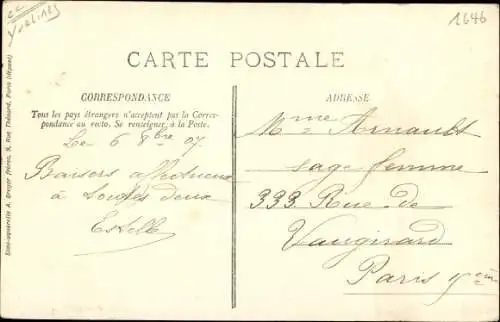 cc
Yvelines
1646
CARTE POSTALE
CORRESPONDANCE
Tous les pays étrangers n'acceptent pas la Corres-
pondance au recto. Se renseigner, à la Poste.
Le 6 8bre 07
Baisers affectueux
à toutes deux
Estelle
ADRESSE
Mme Arnault
sage femme
333 Rue de
Vaugirard
Paris 15 ème
Simi-aquarelle A. Breger frères, 9, Rue Thénard, Paris